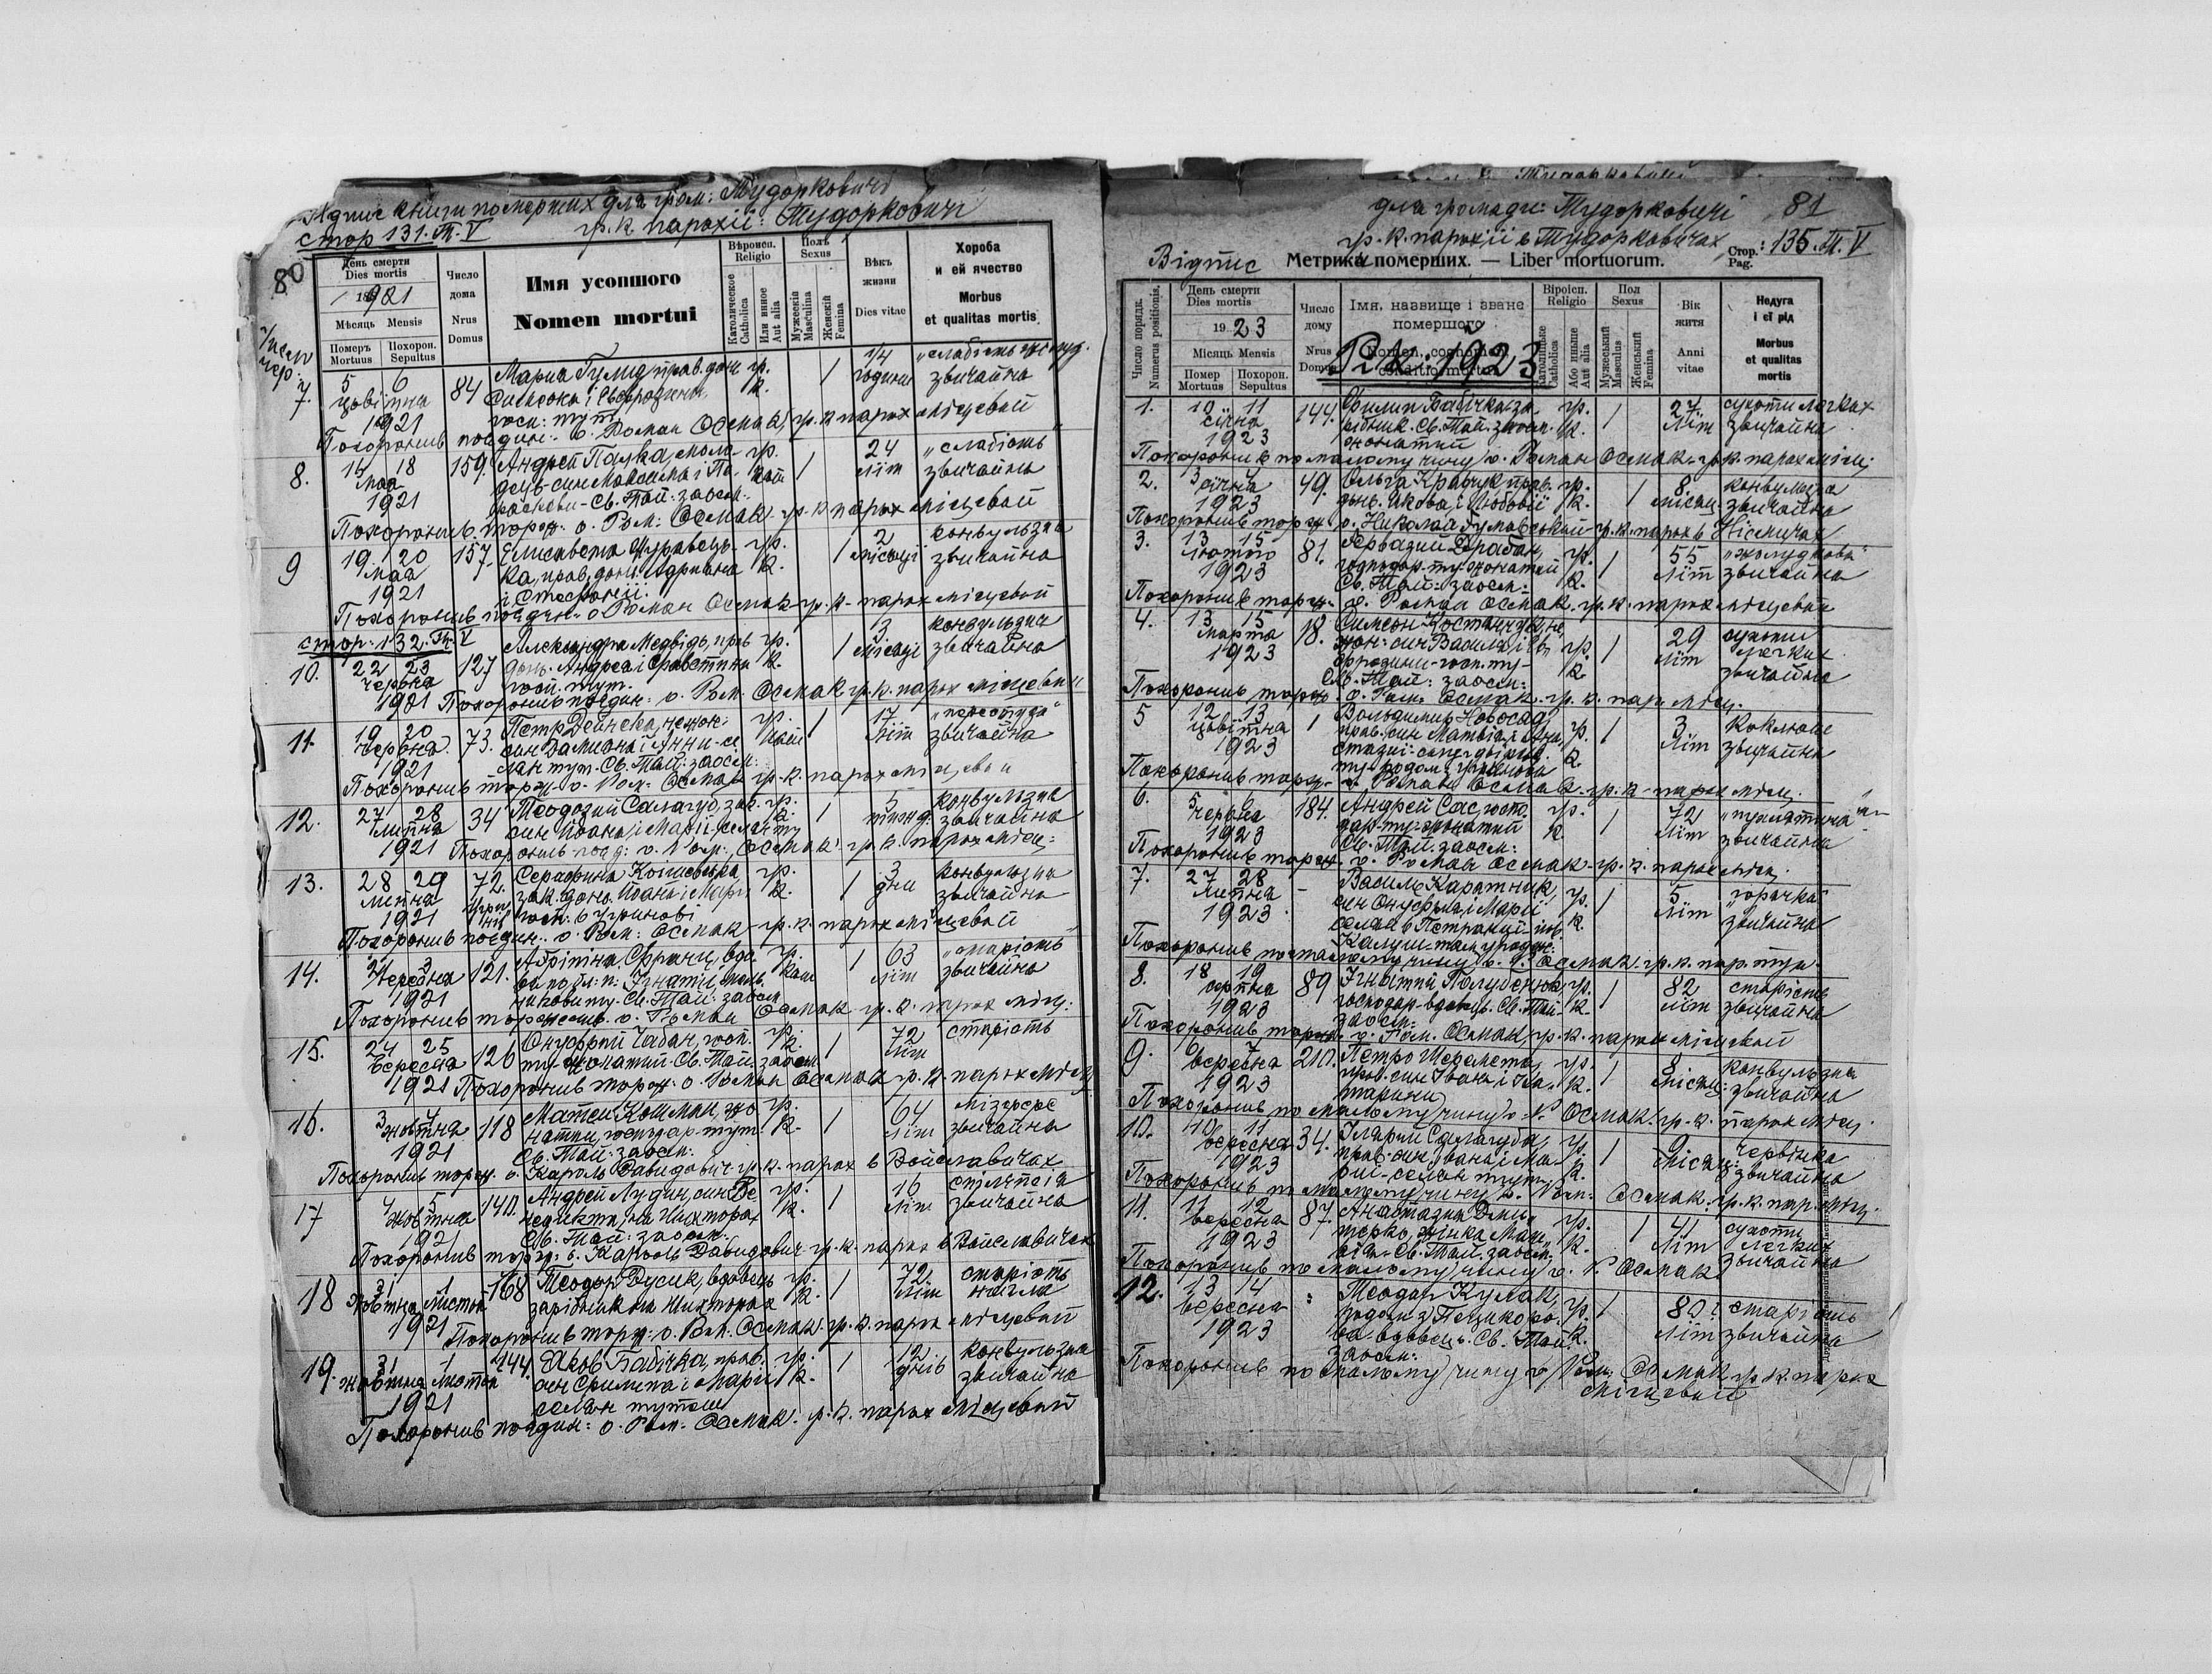 книги померших для гром: Тудорковичі
стор 131. Т. V гр. к. парохії: Тудорковичі
80
День смерти
Dies mortis
1921
Мѣсяць Mensis
Померъ
Mortuus
Похорон.
Sepultus
Число
дома
Nrus
Domus
Имя усопшого
Nomen mortui
Вѣроисп.
Religio
Католическое
Catholica
Или инное
Aut alia
Полъ
Sexus
Мужескій
Masculina
Женскій
Femina
Вѣкъ
жизни
Dies vitae
Хороба
и ей ячество
Morbus
et qualitas mortis
7. 5 6 84 Мариа прав. доч. гр. 1 1/4 „слабість
цвітна к. години звичайна
1921 госп: тут
Похоронив поєдин: о. Роман Осмак, гр. к. парох місцевий
8. 14 18 159. Андрей Палка, моло- гр. 1 24 „слабість
мая дець син Максима і Па- кат літ звичайна
1921 раскеви - Св. Тай: заосм:
Похоронив торж: о. Ром: Осмак - гр. к. парох місцевий
9 19 20 157 Єлисавета Журавець- гр. 1 2 конвульзиа
мая ка, прав. доч: Адриана к. місяці звичайна
1921 і Стефанії.
Похоронив поєдин - о Роман Осмак - гр. к - парох місцевий
стор: 132. Т. V
10. 22 23 127 Александра Медвідь, прав гр. 1 3 конвульзия
червня донь. Андрея і к. місяці звичайна
госп. тут.
1921 Похоронив поєдин: о. Ром. Осмак гр. к. парох місцевий
11. 19 20 73. Петр Дейнека, нежон: гр. 1 17 „перестуда"
червня син Дамиана і Анни - се кат літ звичайна
1921 лян тут - Св. Тай: заосм:
Похоронив торж - о. Ром. Осмак гр. к. парох місцевий
12. 27 28 34 Теодозий Салагуб, зак. гр. 1 5 конвульзиа
липня син Йоана і Марії - селян ту к. тижд. звичайна
1921 Похоронив поєд: о. Ром. Осмак - гр. к. парох місц:
13. 28 29 72. Серафина гр. 1 3 конвульзиа
липня зак. донь. Йоана і Мариї к. дни звичайна
1921 госп: в Угринові
Похоронив поєдин: о. Ром: Осмак - гр. к. парох місцевий
14. 2 3 121. гр. 1 63 „старість
Червня кат літ звичайна
1921 ту - Св. Тай: заосм
Похоронив торжеств. о. Роман Осмак гр. к. парох місц:
15. 24 25 126 Онуфрий Чабан, госп. гр. 1 72 старість
вересня ту - жонатий - Св. Тай. заосм к. літ
1921 Похоронив торж: о. Роман Осмак гр. к. парох місц
16. 3 4 118 Матей Кошман, жо гр. 1 64 мізерере
жовтня натий, господар - тут. к. літ звичайна
1921 Св. Тай: заосм:
Похоронив торж. о. Кароль Давидович гр. к. парох в Войславичах
17 4 5 140. Андрей Лудин, син Ве гр. 1 16
жовтня недикта, на Никторах к. літ звичайна
1921 Св. Тай: заосм:
Похоронив торж: о. Кароль Давидович гр. к. парох в Войславичах
18 31 1 168 Теодор Дусик, вдовець гр. 1 72. старість
жовтня листоп зарібник на Никторах к. літ нагла
1921 Похоронив торж: о. Ром. Осмак. гр. к. парох місцевий
19. 31 1 144. Яков Бабічка, прав. гр. 1 12. конвульзиа
жовтня листоп син Филипа і Марії к. днів звичайна
1921 селян тутеш
Похоронив поєдин: о. Ром. Осмак. гр. к. парох місцевий
для громади: Тудорковичі 81
гр. к. парохії в Тудорковичах
Відпис Метрика померших. — Liber mortuorum. Стор. Pag. : 135. Т. V
Число порядк.
Numerus positionis
День смерти
Dies mortis
1923
Місяць Mensis
Помер
Mortuus
Похорон.
Sepultus
Число
дому
Nrus
Domus
Імя,назвище і зване
помершого
Nomen, cognomen
conditio mortui
Рік: 1923
Віроісп.
Religio
Католицьке
Catholica
Або иньше
Aut alia
Пол
Sexus
Мужеський
Masculus
Женський
Feminina
Вік
житя
Anni
vitae
Недуга
і єї рід
Morbus
et qualitas
mortis
1. 10 11 144. Филип Бабічка за- гр. 1 27 сухоти легких
січня рібник. Св. Тай. заосм. к. літ звичайна
1923 жонатий
Похоронив по малому чину о. Роман Осмак - гр. к. парох місц:
2. 3 4 49. Ольга Кравчук прав. гр. 1 8 конвульзиа
січня донь. Якова і Любовії к. місяц. звичайна
1923
Похоронив торж о. Николай гр. к. парох в Нісмичах
3. 13 15 81. Гервазий Драбан, гр. 1 55 „жолудкова"
лютого господар ту - жонатий к. літ звичайна
1923 Св. Тай: заосм:
Похоронив торж. о. Роман Осмак, гр. к. парох місцевий
4. 13 15 18. Симеон не- гр. 1 29 сухоти
марта жон: син Василя і к. літ легких
1923 госп. ту - звичайна
Св. Тай: заосм:
Похоронив торж. о. Ром: Осмак. гр. к. пар. місц.
5 12 13 1 Володимир Новосад, гр. 1 3 коклюш
цвітня прав. син Матвія і Ана- к. літ звичайна
1923 стазиї
ту - родом з Угринова
Похоронив торж - о. Роман Осмак. гр. к - парох місц.
6. 5 6 184. Андрей Сас, госпо гр. 1 72
червня дар - ту - жонатий к літ звичайна
1923 Св. Тай. заосм:
Похоронив торж. о. Роман Осмак - гр. к. парох місц.
7. 27 28 - Василь Каратник, гр. 1 5 „горячка"
липня син Онуфрия і Марії к. літ звичайна
1923 селян в Петранці - пов.
Калуш - там уродж:
Похоронив по малому чину о. Р. Осмак гр. к. пар. тут.
8. 18 19 89 Ігнатий гр. 1 82 старість
серпня господар - вдовець. Св. Тай. к. літ звичайна
1923 заосм:
Похоронив торж. о. Ром. Осмак, гр. к. парох місцевий
9. 6 7 210. Петро Шеремета, гр. 1 8 конвульзиа
вересня прав. син Івана і Ка- к. місяц: звичайна
1923 тарини
Похоронив по малому чину о. Р. Осмак. гр. к. парох місц.
10. 10 11 34. Іларий Салагуба, гр. 1 9 червінка
вересня прав. син Івана і Ма- к. місяц: звичайна
1923 рії - селян тут.
Похоронив по малому чину о. Ром. Осмак. гр. к. пар. місц.
11. 11 12 87. Анастазия Дми- гр. 1 41 сухоти
вересня терко, жінка к. літ легких
1923 Св. Тай. заосм. звичайна
Похоронив по малому чину о. Р. Осмак
12. 13 14 : Теодор Кулак, гр. 1 80 старість
вересня родом з к. літ звичайна
1923 вдовець. Св. Тай.
заосм:
Похоронив по малому чину о. Ром. Осмак гр. к. парох
місцевий